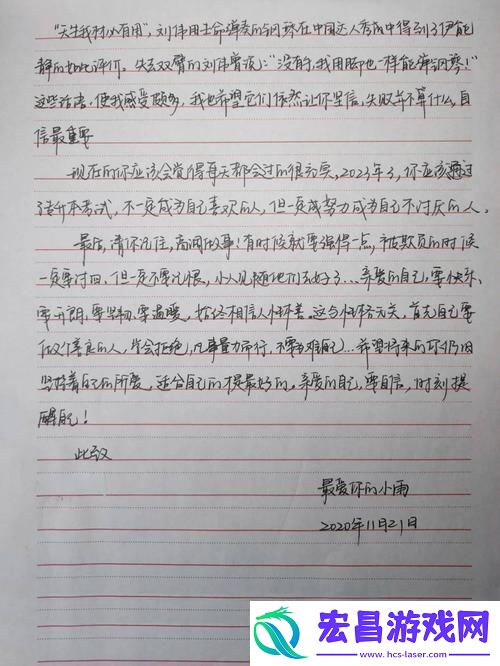 “天生我材必有用”，刘伟用生命弹奏的钢琴在中国达人秀中得到了伊能
静的如此评价，失去双臂的刘伟曾说：“没有手，我用脚也一样能弹钢琴！”
这些话语，使我感受颇多，我也希望它们依然让你坚信，失败并不算什么，自
信最重要
现在的你应该会觉得每天都会过的很充实，2023年了，你应该通过
专升本考试，不一定成为自己喜欢的人，但一定成努力成为自己不讨厌的人。
最后，请你记住，高调做事！有时候就要强得一点，被欺负的时候
一定要讨回，但一定不要记恨，小人见随他们去好了…亲爱的自己，要快乐，
要开朗，要坚韧，要温暖，始终相信人性本善。这与性格无关，首先自己要
做个善良的人，学会拒绝，凡事量力而行，不要为难自己…希望将来的你仍旧
坚持着自己的所爱，适合自己的才是最好的。亲爱的自己，要自信，时刻提
醒自己！
此致
最爱你的小雨
2020年11月21日
宏昌游戏网
www.hcs-laser.com